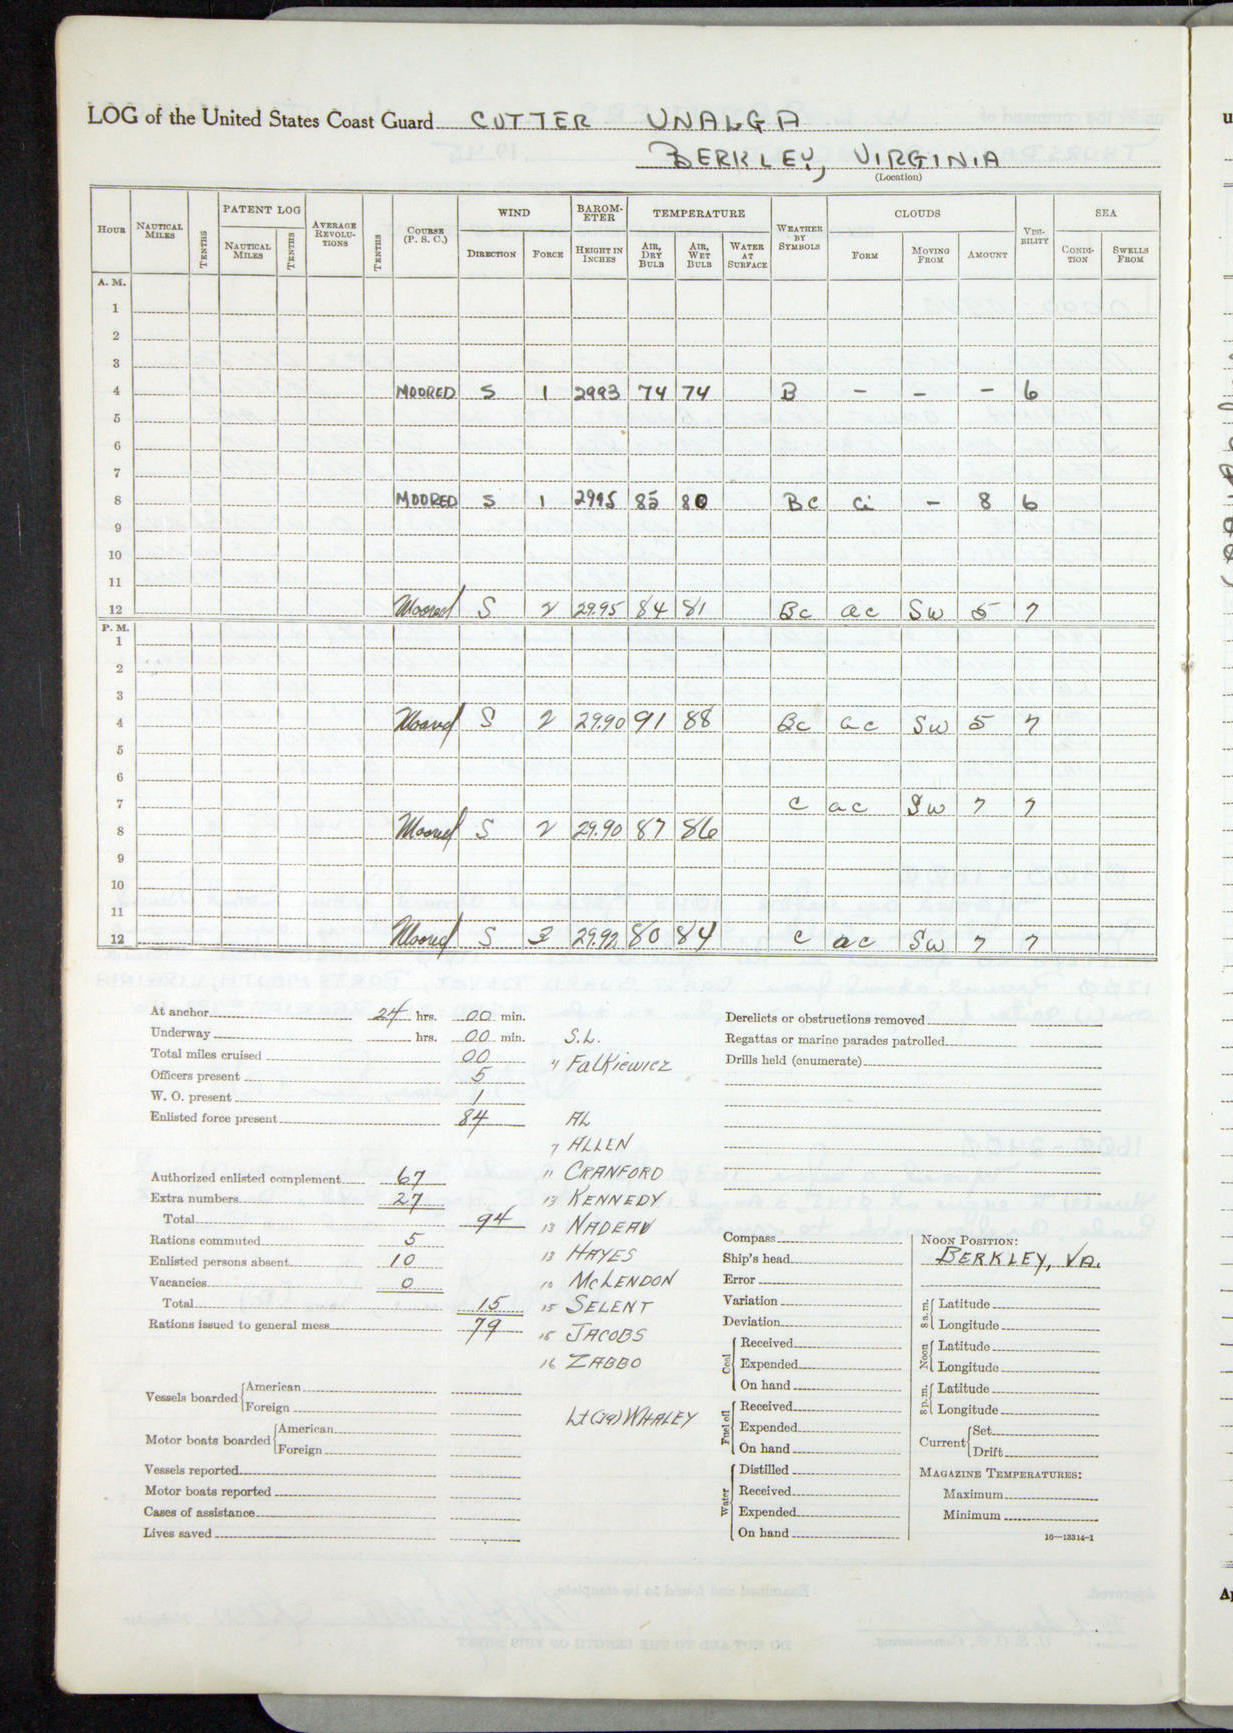 LOG of the United States Coast Guard CUTTER UNALGA
BERKLEY, VIRGINIA
(Location)
HOUR NAUTICAL MILES TENTHS PATENT LOG NAUTICAL MILES TENTHS AVERAGE REVOLU-TIONS TENTHS COURSE (P. S. C.) WIND DIRECTION FORCE BAROM-ETER HEIGHT IN INCHES TEMPERATURE AIR, DRY BULB AIR, WET BULB WATER AT SURFACE WEATHER BY SYMBOLS CLOUDS FORM MOVING FROM AMOUNT VISI-BILITY SEA CONDI-TION SWELLS FROM
A. M.
1
2
3
4 MOORED S 1 2993 74 74 B – – – 6
5
6
7
8 MOORED S 1 2995 85 80 BC Ci – 8 6
9
10
11
12 Moored S 2 29.95 84 81 Bc ac SW 5 7
P. M.
1
2
3
4 Moored S 2 29.90 91 88 Bc ac SW 5 7
5
6
7 C ac SW 7 7
8 Moored S 2 29.90 87 86
9
10
11
12 Moored S 3 29.92 80 84 C ac SW 7 7
At anchor 24 hrs. 00 min.
Underway hrs. 00 min.
Total miles cruised 00
Officers present 5
W. O. present 1
Enlisted force present 84
Authorized enlisted complement 67
Extra numbers 27
Total 94
Rations commuted 5
Enlisted persons absent 10
Vacancies 0
Total 15
Rations issued to general mess 79
Vessels boarded American
Foreign
Motor boats boarded American
Foreign
Vessels reported
Motor boats reported
Cases of assistance
Lives saved
S.L.
Falkiewicz
AL
7 ALLEN
11 CRANFORD
13 KENNEDY
13 NADEAU
13 HAYES
10 McLENDON
15 SELENT
15 JACOBS
16 ZABBO
Lt (jg) WHALEY
Derelicts or obstructions removed
Regattas or marine parades patrolled
Drills held (enumerate)
Compass
Ship's head
Error
Variation
Deviation
Coal Received
Expended
On hand
Fuel oil Received
Expended
On hand
Water Distilled
Received
Expended
On hand
NOON POSITION:
BERKLEY, VA.
8 a.m. Latitude
Longitude
Noon Latitude
Longitude
8 p.m. Latitude
Longitude
Current Set
Drift
MAGAZINE TEMPERATURES:
Maximum
Minimum
16—13314-1